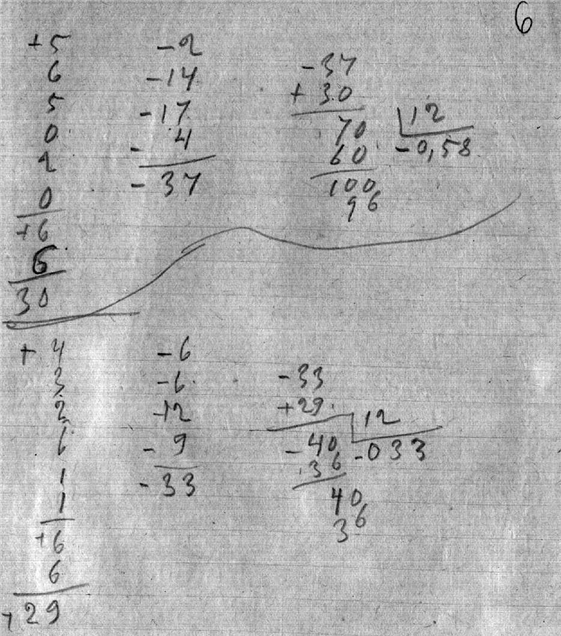 6
+5
6
5
0
2
0
+6
6
30
-2
-14
-17
- 4
- 37
-37
+ 30
70 12
60 -0,58
100
96
+ 4
3
2
6
1
1
+6
6
+29
-6
-6
-12
- 9
- 33
-33
+29
-40 12
36 -033
40
36